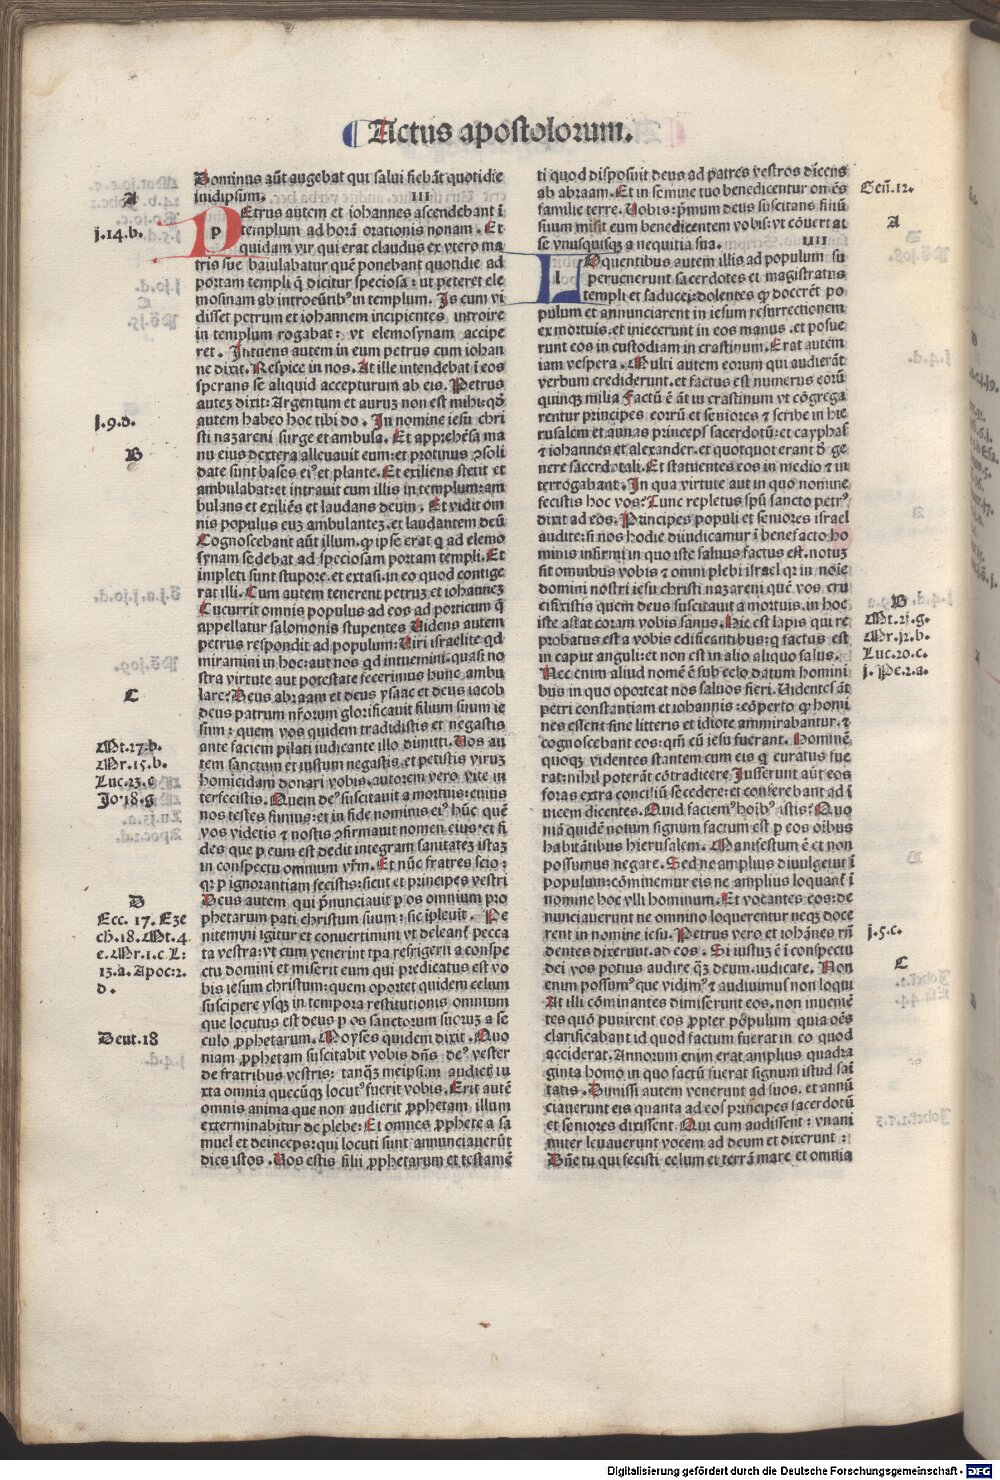 Actus apostolorum.
Dominus aūt augebat qui salui fiebāt quotidie
inidipsum. III
A
PEtrus autem et iohannes ascendebant ī
j.14.b.
p templum ad horā orationis nonam. Et
quidam vir qui erat claudus ex vtero ma
tris sue baiulabatur quē ponebant quotidie ad
portam templi q̄ dicitur speciosa: ut peteret ele
mosinam ab introeūtibꝰ in templum. Is cum vi
disset petrum et iohannem incipientes introire
in templum rogabat: vt elemosynam accipe
ret. Intuens autem in eum petrus cum iohan
ne dixit. Respice in nos. At ille intendebat ī eos
sperans se aliquid accepturum ab eis. Petrus
autez dixit: Argentum et auruz non est mihi: qō
j.9.d.
autem habeo hoc tibi do. In nomine iesu chri
sti nazareni surge et ambula. Et apprehēsa ma
B
nu eius dextera alleuauit eum: et protinus ↄsoli
date sunt bases eiꝰ et plante. Et exiliens stetit et
ambulabat: et intrauit cum illis in templum: am
bulans et exiliēs et laudans deum. Et vidit om
nis populus euz ambulantez. et laudantem deū
Cognoscebant aūt illum. ꝙ ipse erat q̄ ad elemo
synam sedebat ad speciosam portam templi. Et
impleti sunt stupore. et extasi. in eo quod contige
rat illi. Cum autem tenerent petruz et iohannez
Cucurrit omnis populus ad eos ad porticum q̄
appellatur salomonis stupentes Uidens autem
petrus respondit ad populum: Uiri israelite qd
miramini in hoc: aut nos qd intuemini. quasi no
stra virtute aut potestate fecerimus hunc ambu
C
lare? Deus abraam et deus ysaac et deus iacob
deus patrum nr̄orum glorificauit filium suum ie
sum: quem vos quidem tradidistis et negastis
Mt.27.b.
ante faciem pilati iudicante illo dimitti. Uos au
Mr.15.b.
tem sanctum et iustum negastis. et petistis viruz
Luc.23.c
homicidam donari vobis. autorem vero vite in
Jo.18.g
terfecistis. Quem deꝰ suscitauit a mortuis: cuius
nos testes sumus: et in fide nominis eiꝰ hūc quē
vos videtis ⁊ nostis ↄfirmauit nomen eius: et fi
des que p eum est dedit integram sanitatez istaz
in conspectu omnium vr̄m. Et nūc fratres scio:
qr p ignorantiam fecistis: sicut et principes vestri
D
Deus autem qui p̄nunciauit p os omnium pro
Ecc. 17. Eze
phetarum pati christum suum: sic ipleuit. Pe
ch.18. Mt.4
nitemini igitur et conuertimini vt deleant̄ pecca
e. Mr.1.c L:
ta vestra: vt cum venerint tpa refrigerii a conspe
13.a. Apoc:2.
ctu domini et miserit eum qui predicatus est vo
d.
bis iesum christum: quem oportet quidem celum
suscipere vsqz in tempora restitutionis omnium
que locutus est deus p os sanctorum suoruz a se
Deut.18
culo ꝓphetarum. Moyses quidem dixit. Quo
niam ꝓphetam suscitabit vobis dn̄s deꝰ vester
de fratribus vestris: tanqz meipsum: audietꝭ iu
xta omnia quecūqz locutꝰ fuerit vobis. Erit autē
omnis anima que non audierit ꝓphetam illum
exterminabitur de plebe: Et omnes ꝓphete a sa
muel et deinceps: qui locuti sunt annunciauerūt
dies istos. Uos estis filii ꝓphetarum et testamē
ti quod disposuit deus ad patres vestros dicens
Gen̄.12.
ab abraam. Et in semine tuo benedicentur om̄es
familie terre. Uobis p̄mum deus suscitans filiū
A
suum misit eum benedicentem vobis: vt cōuert at
se vnusquisqz a nequitia sua. IIII
LOquentibus autem illis ad populum su
l peruenerunt sacerdotes et magistratus
templi et saducei: dolentes ꝙ docerēt po
pulum et annunciarent in iesum resurrectionem
ex mortuis. et iniecerunt in eos manus. et posue
runt eos in custodiam in crastinum. Erat autem
iam vespera. Multi autem eorum qui audierāt
verbum crediderunt. et factus est numerus eorū
quinqz milia Factū ē āt in crastinum vt cōgrega
rentur principes eorū et seniores ⁊ scribe in hie
rusalem et annas princeps sacerdotū: et cayphas
⁊ iohannes et alexander. et quotquot erant d̄ ge
nere sacerdotali. Et statuentes eos in medio ⁊ in
terrogabant. In qua virtute aut in quo nomine
fecistis hoc vos: Tunc repletus spū sancto petrꝰ
dixit ad eos. Principes populi et seniores israel
audite: si nos hodie diiudicamur ī benefacto ho
minis infirmi in quo iste saluus factus est. notuz
sit omnibus vobis ⁊ omni plebi israel qr in nōie
domini nostri iesu christi nazareni quē vos cru
cifixistis quem deus suscitauit a mortuis. in hoc
B
iste astat coram vobis sanus. Hic est lapis qui re
Mt.2j.g.
probatus est a vobis edificantibus: q̄ factus est
Mr.j2.b.
in caput anguli: et non est in alio aliquo salus.
Luc.20.c.
Nec enim aliud nomē ē sub celo datum homini
j. Pe.2.a.
bus in quo oporteat nos saluos fieri. Uidentes āt
petri constantiam et iohannis: cōperto ꝙ homi
nes essent sine litteris et idiote ammirabantur. ⁊
cognoscebant eos: qm̄ cū iesu fuerant. Hominē
quoqz videntes stantem cum eis q̄ curatus fue
rat: nihil poterāt cōtradicere Jusserunt aūt eos
foras extra conciliū secedere: et conferebant ad ī
uicem dicentes. Quid faciemꝰ hoibꝰ istis? Quo
niā quidē notum signum factum est p eos oibus
habitātibus hierusalem. Manifestum ē et non
possumus negare. Sed ne amplius diuulgetur ī
populum: cōminemur eis ne amplius loquant̄ ī
nomine hoc vlli hominum. Et vocantes eos: de
nunciauerunt ne omnino loquerentur neqz doce
j.5.c.
rent in nomine iesu. Petrus vero et iohānes rn̄
dentes dixerunt. ad eos. Si iustuz ē ī conspectu
C
dei vos potius audire q̄z deum. iudicate. Non
enim possumꝰ que vidimꝰ ⁊ audiuimus non loqui
At illi cōminantes dimiserunt eos. non inuenie
tes quō punirent eos ꝓpter pōpulum quia oēs
clarificabant id quod factum fuerat in eo quod
acciderat. Annorum enim erat amplius quadra
ginta homo in quo factū fuerat signum istud saī
tatis. Dimissi autem venerunt ad suos. et annū
ciauerunt eis quanta ad eos principes sacerdotū
et seniores dixissent. Qui cum audissent: vnani
miter leuauerunt vocem ad deum et dixerunt:
Dn̄e tu qui fecisti celum et terrā mare et omnia
Digitalisierung gefördert durch die Deutsche Forschungsgemeinschaft - DFG